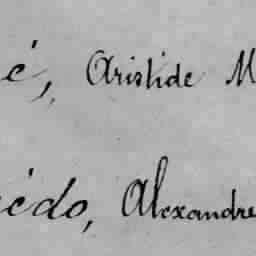 é, Aristide M
iédo, Alexandre